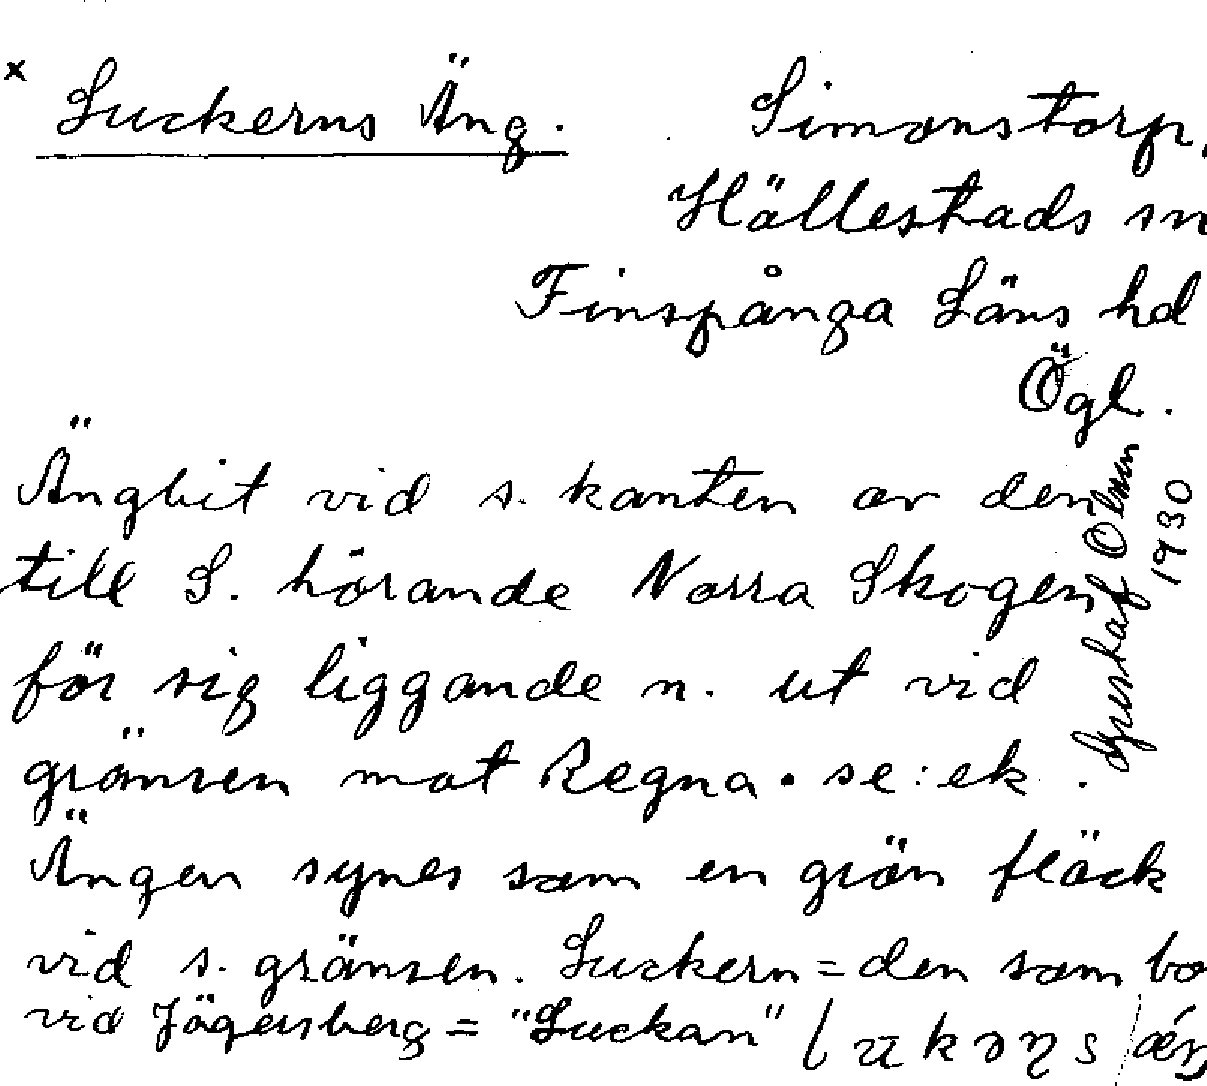 x Luckerns Äng. Simonstorp,
Hällestads sn
Finspånga Läns hd
Ögl.
Ängbit vid s. kanten av den
till S. hörande Norra Skogen
för sig liggande n. ut vid
gränsen mot Regna. se: ek.
Ängen synes som en grön fläck
vid s. gränsen. Luckern = den som bo
vid Jägersberg = "Luckan"
Olsson
1930